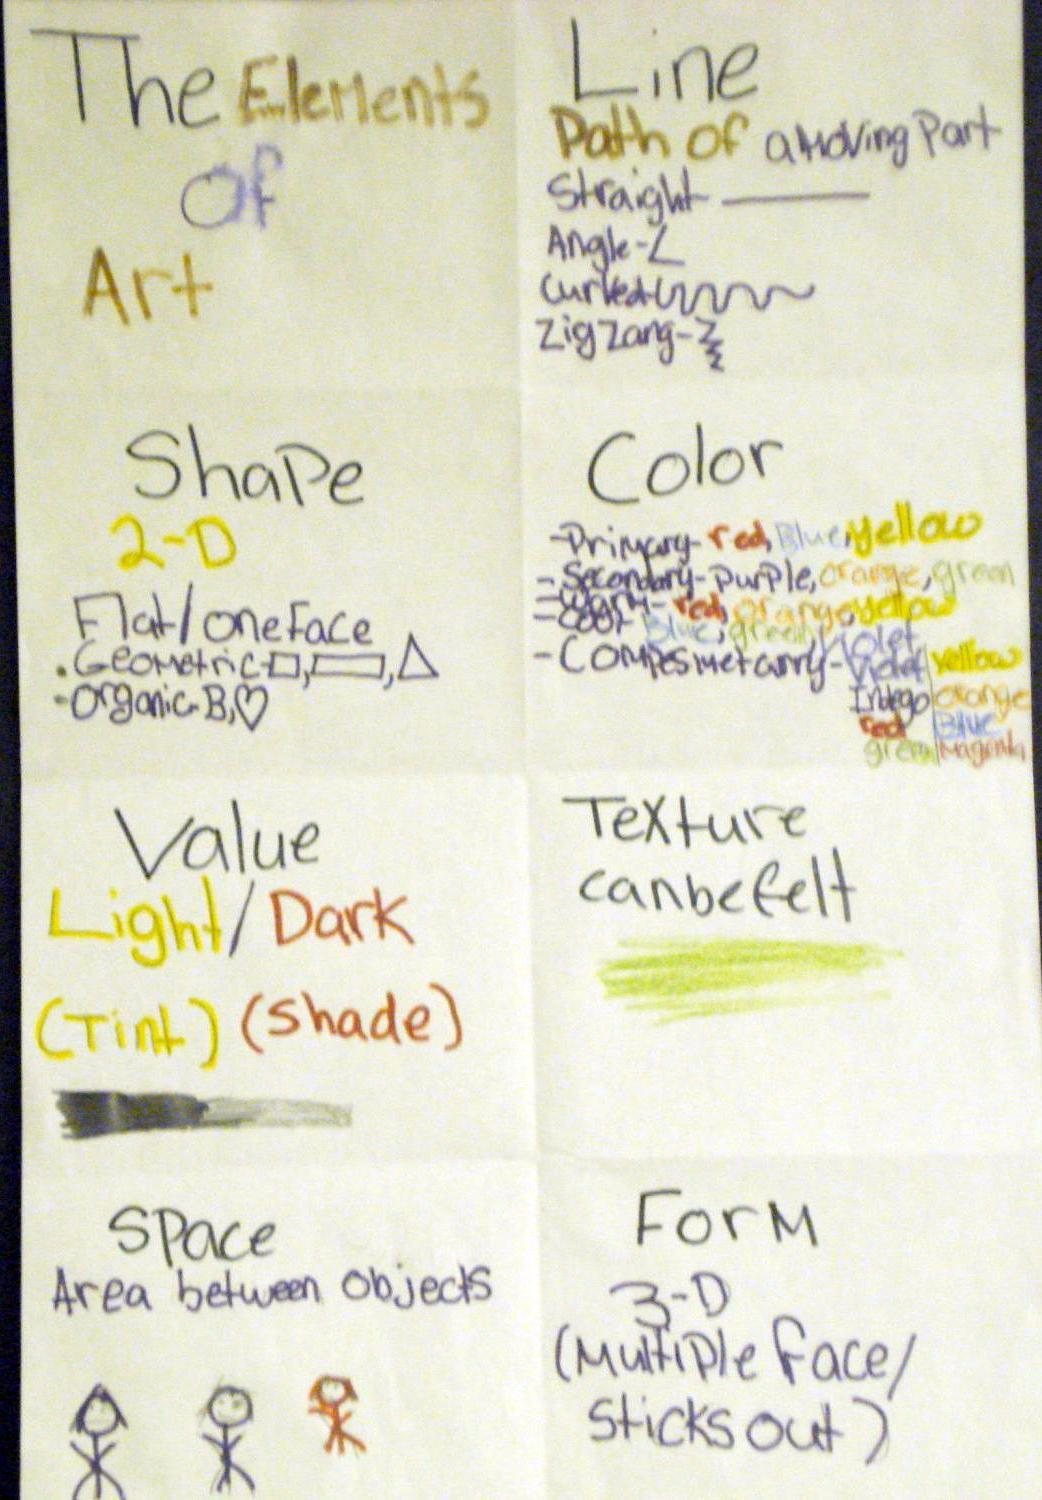 The Elements
Of
Art
Line
Path of a Moving Part
Straight-
Angle-
Curved-
Zig Zang-
Shape
2-D
Flat/one face
.Geometric-
-Organic-B,
Color
-Primary- red, Blue, yellow
-Secondary-purple, orange, green
-Warm- red, orange, yellow
-Cool Blue, green, Violet
-Compesmetarry-Violet yellow
Indego orange
red Blue
green Magenta
Value
Light/Dark
(Tint) (Shade)
Texture
can be felt
Space
Area between objects
Form
3-D
(Multiple face/
Sticks out)